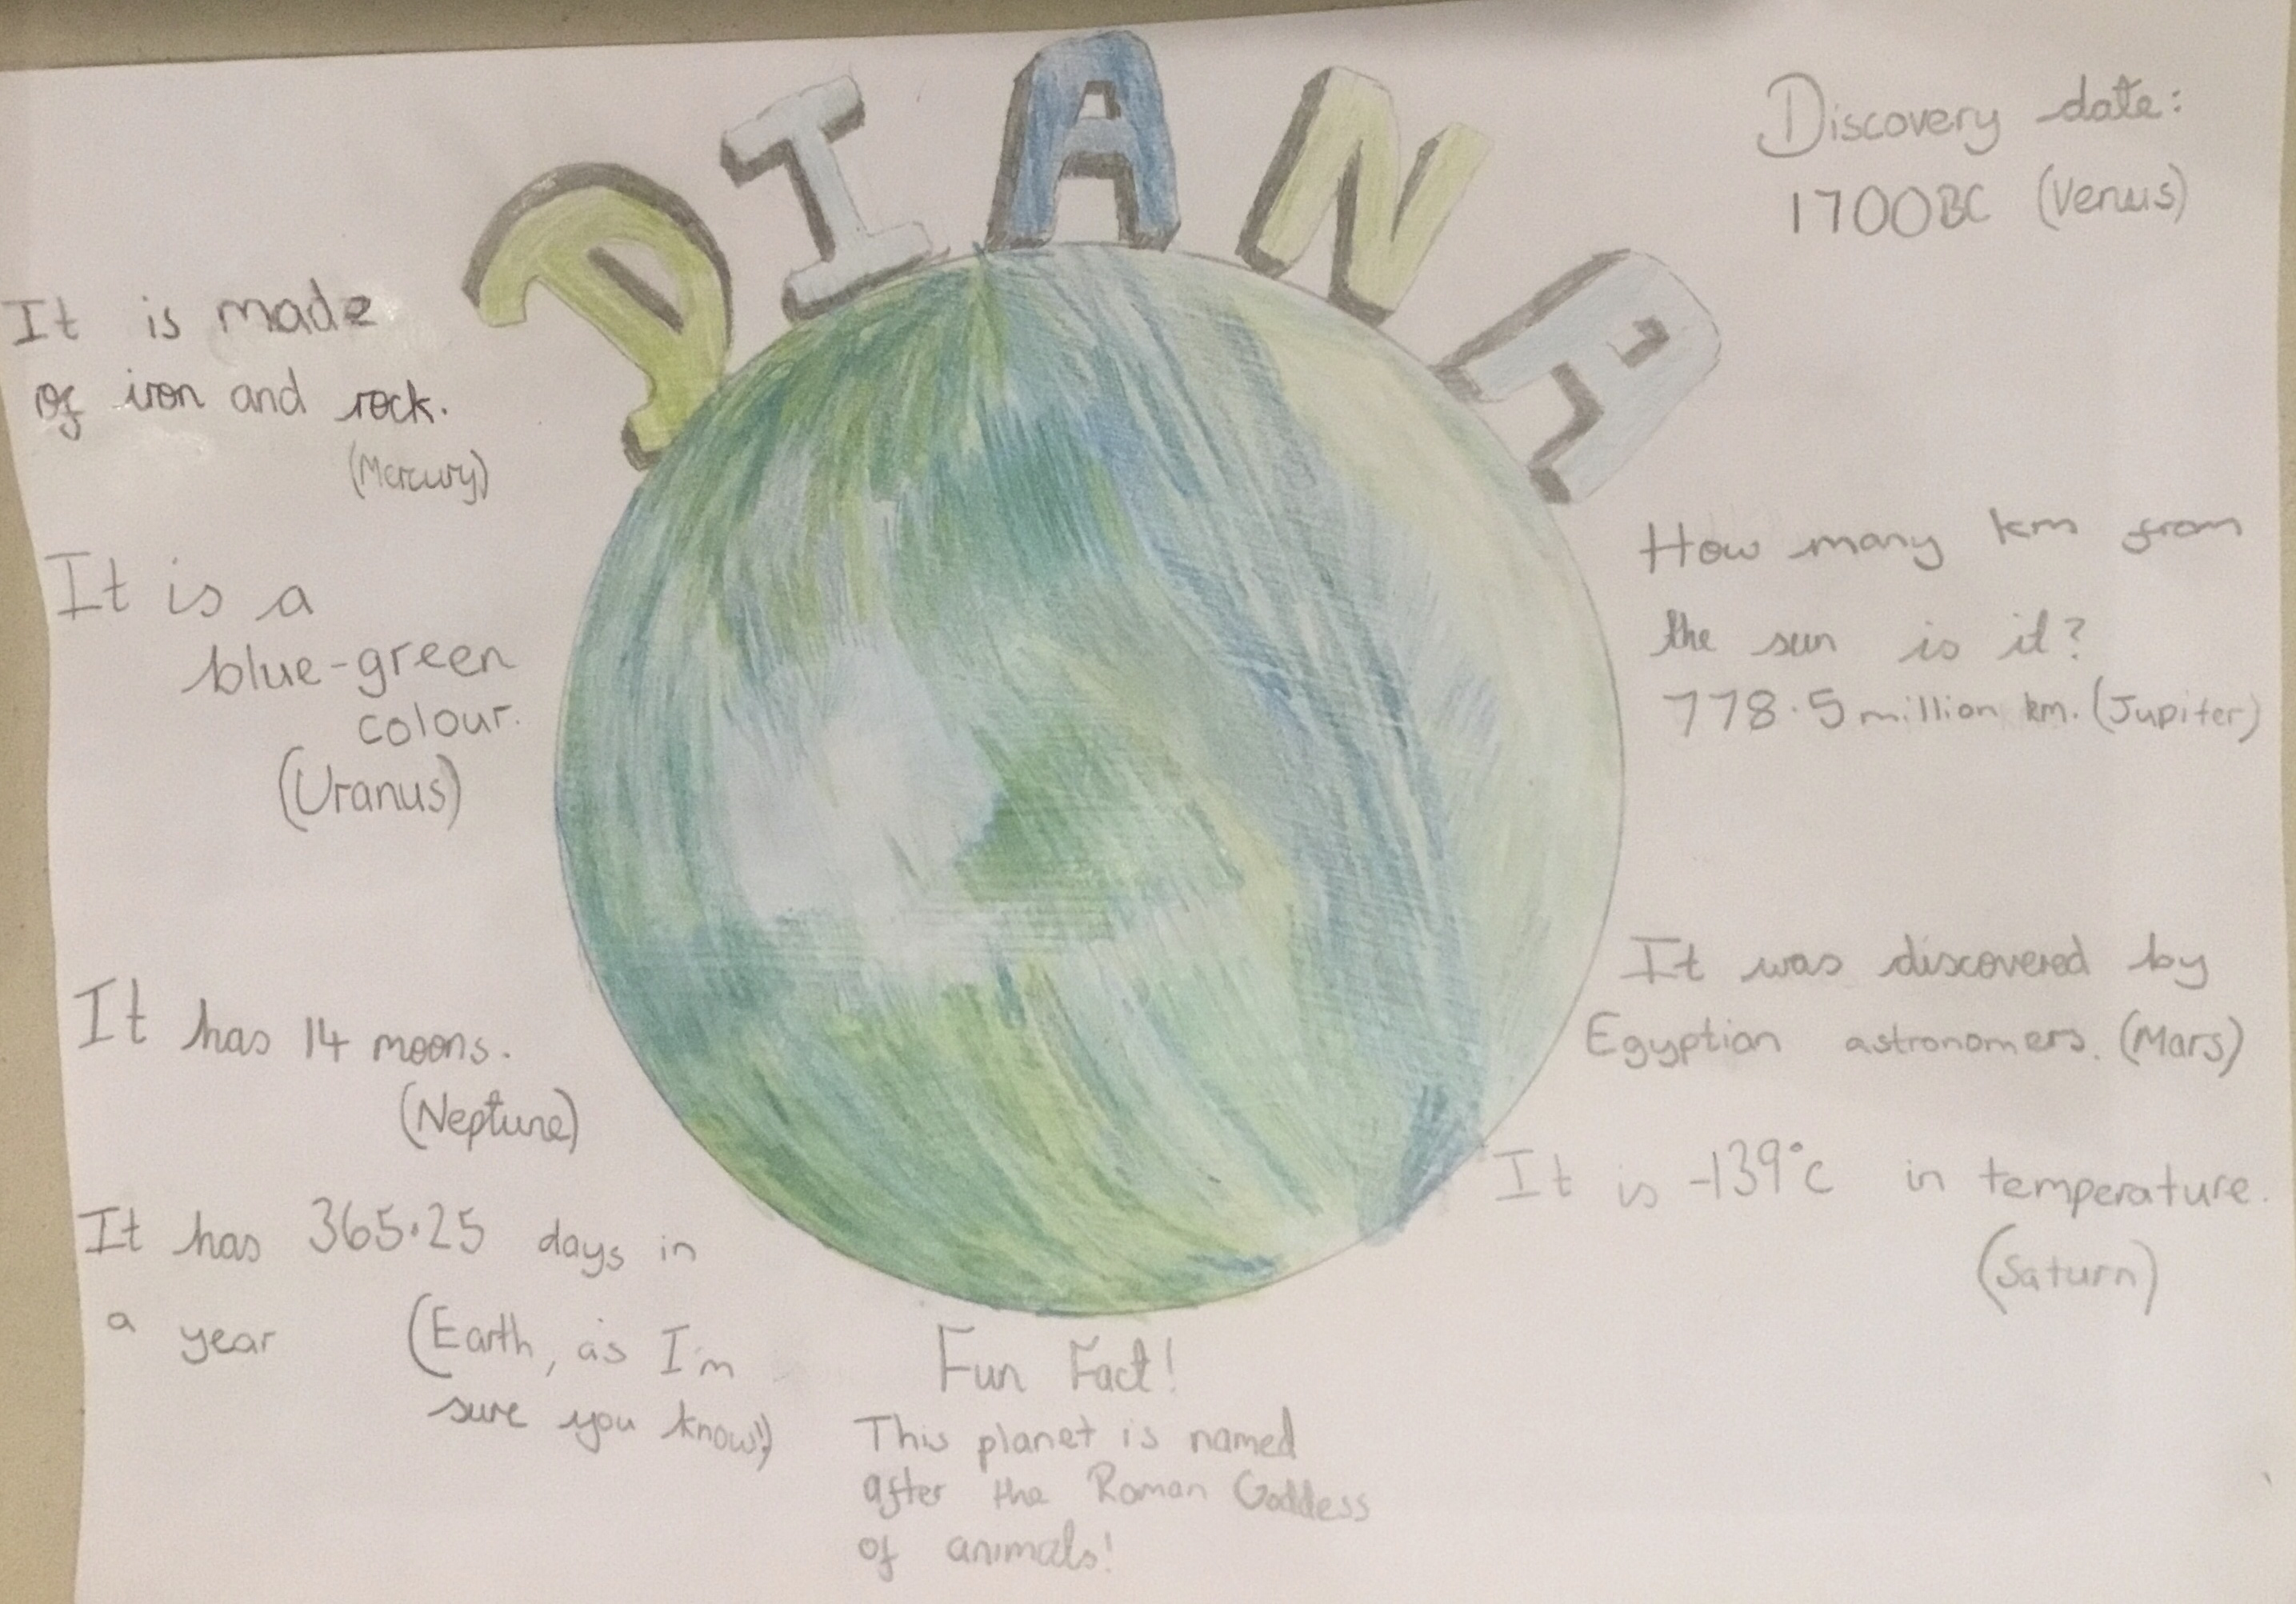 DIANA
Discovery date:
1700BC (Venus)
It is made
of iron and rock.
(Mercury)
It is a
blue-green
colour.
(Uranus)
How many km from
the sun is it?
778.5 million km. (Jupiter)
It has 14 moons.
(Neptune)
It was discovered by
Egyptian astronomers. (Mars)
It is -139°c in temperature.
(Saturn)
It has 365.25 days in
a year (Earth, as I'm
sure you know!)
Fun Fact!
This planet is named
after the Roman Goddess
of animals!